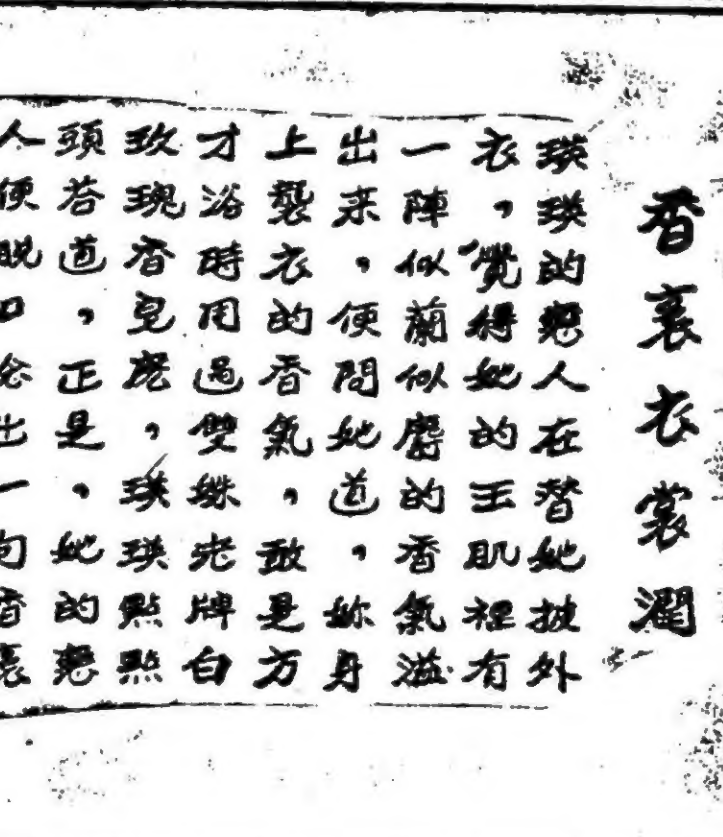 香裛衣裳潤
瑛瑛的戀人在替她披外
衣，覺得她的玉肌裡有
一陣似蘭似麝的香氣溢
出来，便問她道，妳身
上襲衣的香氣，敢是方
才浴時用過雙妹老牌白
玫瑰香皂麽，瑛瑛點點
頭荅道，正是，她的戀
人便脫口念出一句香裛